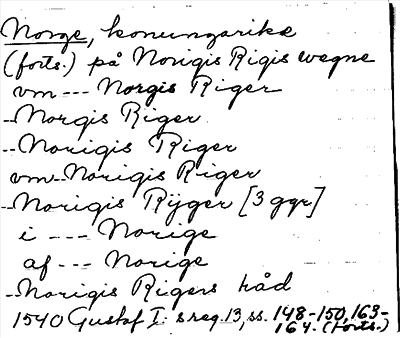 Norge, konungarike
(forts.) på Norigis Rigis wegne
vm --- Norgis Riger
--Norgis Riger
--Norigis Riger
vm--Norigis Riger
--Norigis Rijger [3 ggr]
i --- Norige
af --- Norige
--Norigis Rigers råd
1540 Gustaf I: s reg. 13, ss. 148-150, 163-
164. (Forts.)